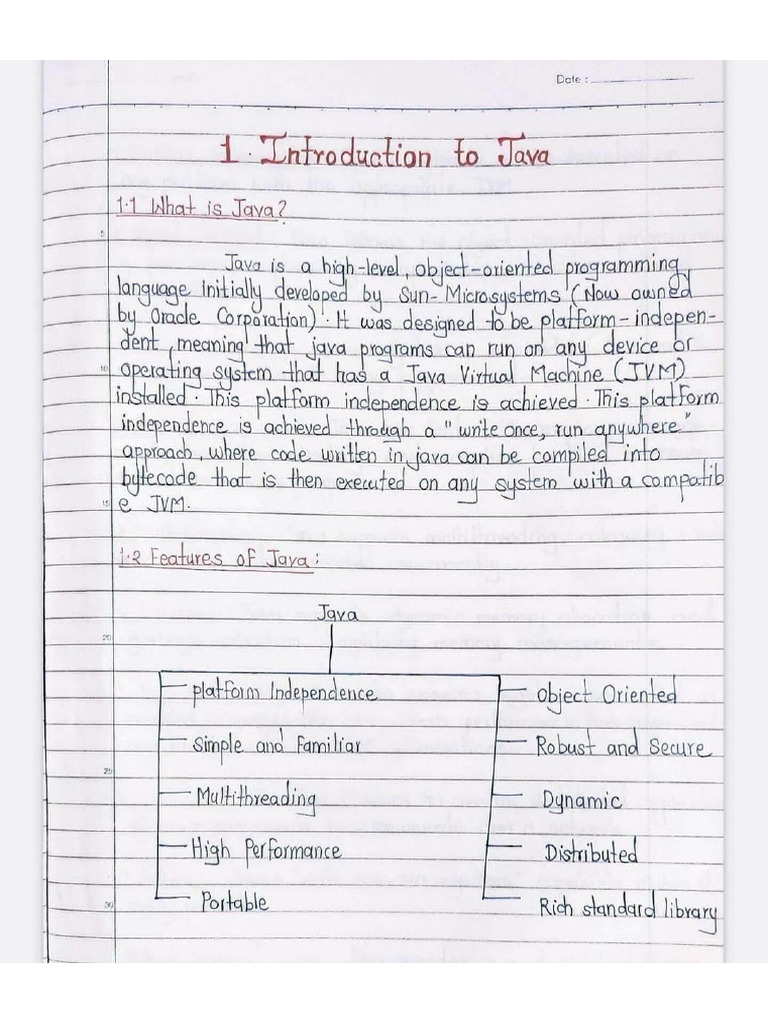 Date :
1. Introduction to Java
1.1 What is Java?
5
Java is a high-level, object-oriented programming
language initially developed by Sun-Microsystems (Now owned
by Oracle Corporation). It was designed to be platform-indepen-
dent, meaning that java programs can run on any device or
10 operating system that has a Java Virtual Machine (JVM)
installed. This platform independence is achieved. This platform
independence is achieved through a "write once, run anywhere"
approach, where code written in java can be compiled into
bytecode that is then executed on any system with a compatib
15 e JVM.
1.2 Features of Java:
Java
20
platform Independence
Simple and Familiar
25
Multithreading
High Performance
30 Portable
Object Oriented
Robust and Secure
Dynamic
Distributed
Rich standard library